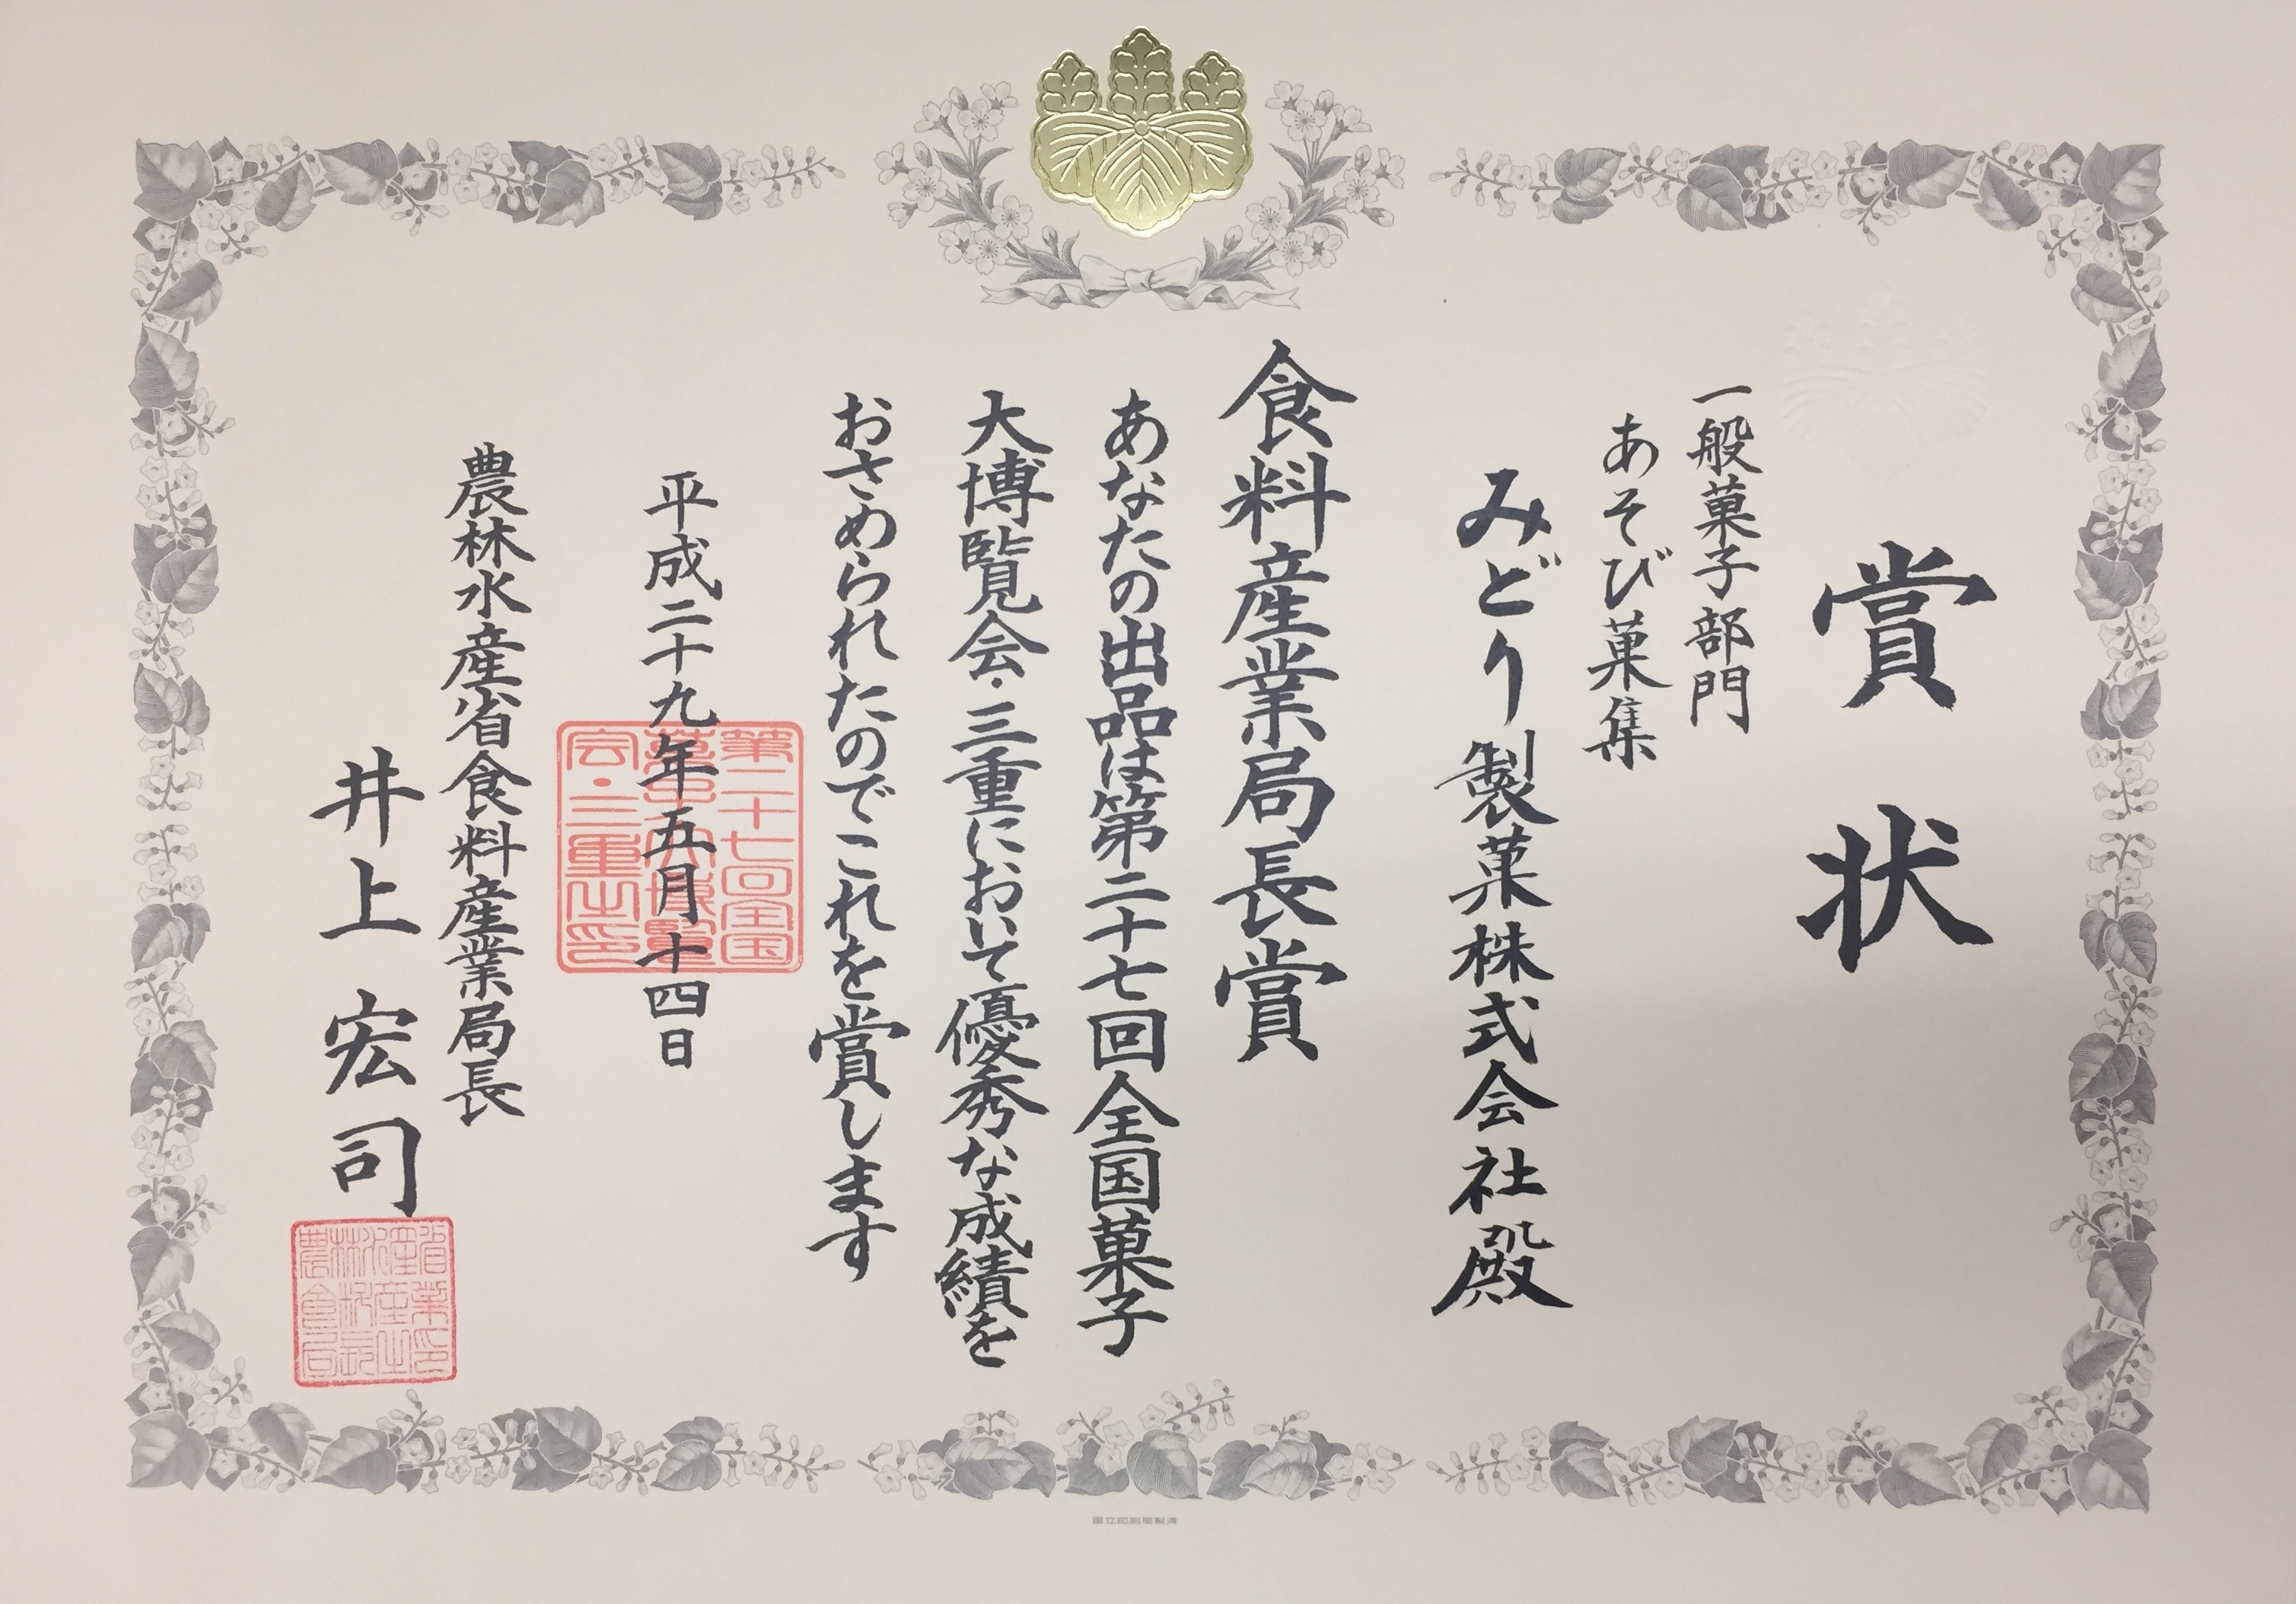 賞状
一般菓子部門
あそび菓集
みどり製菓株式会社殿
食料産業局長賞
あなたの出品は第二十七回全国菓子
大博覧会・三重において優秀な成績を
おさめられたのでこれを賞します
平成二十九年五月十四日
第二十七回全国
菓子大博覧
会・三重之印
農林水産省食料産業局長
井上宏司
国立印刷局製造